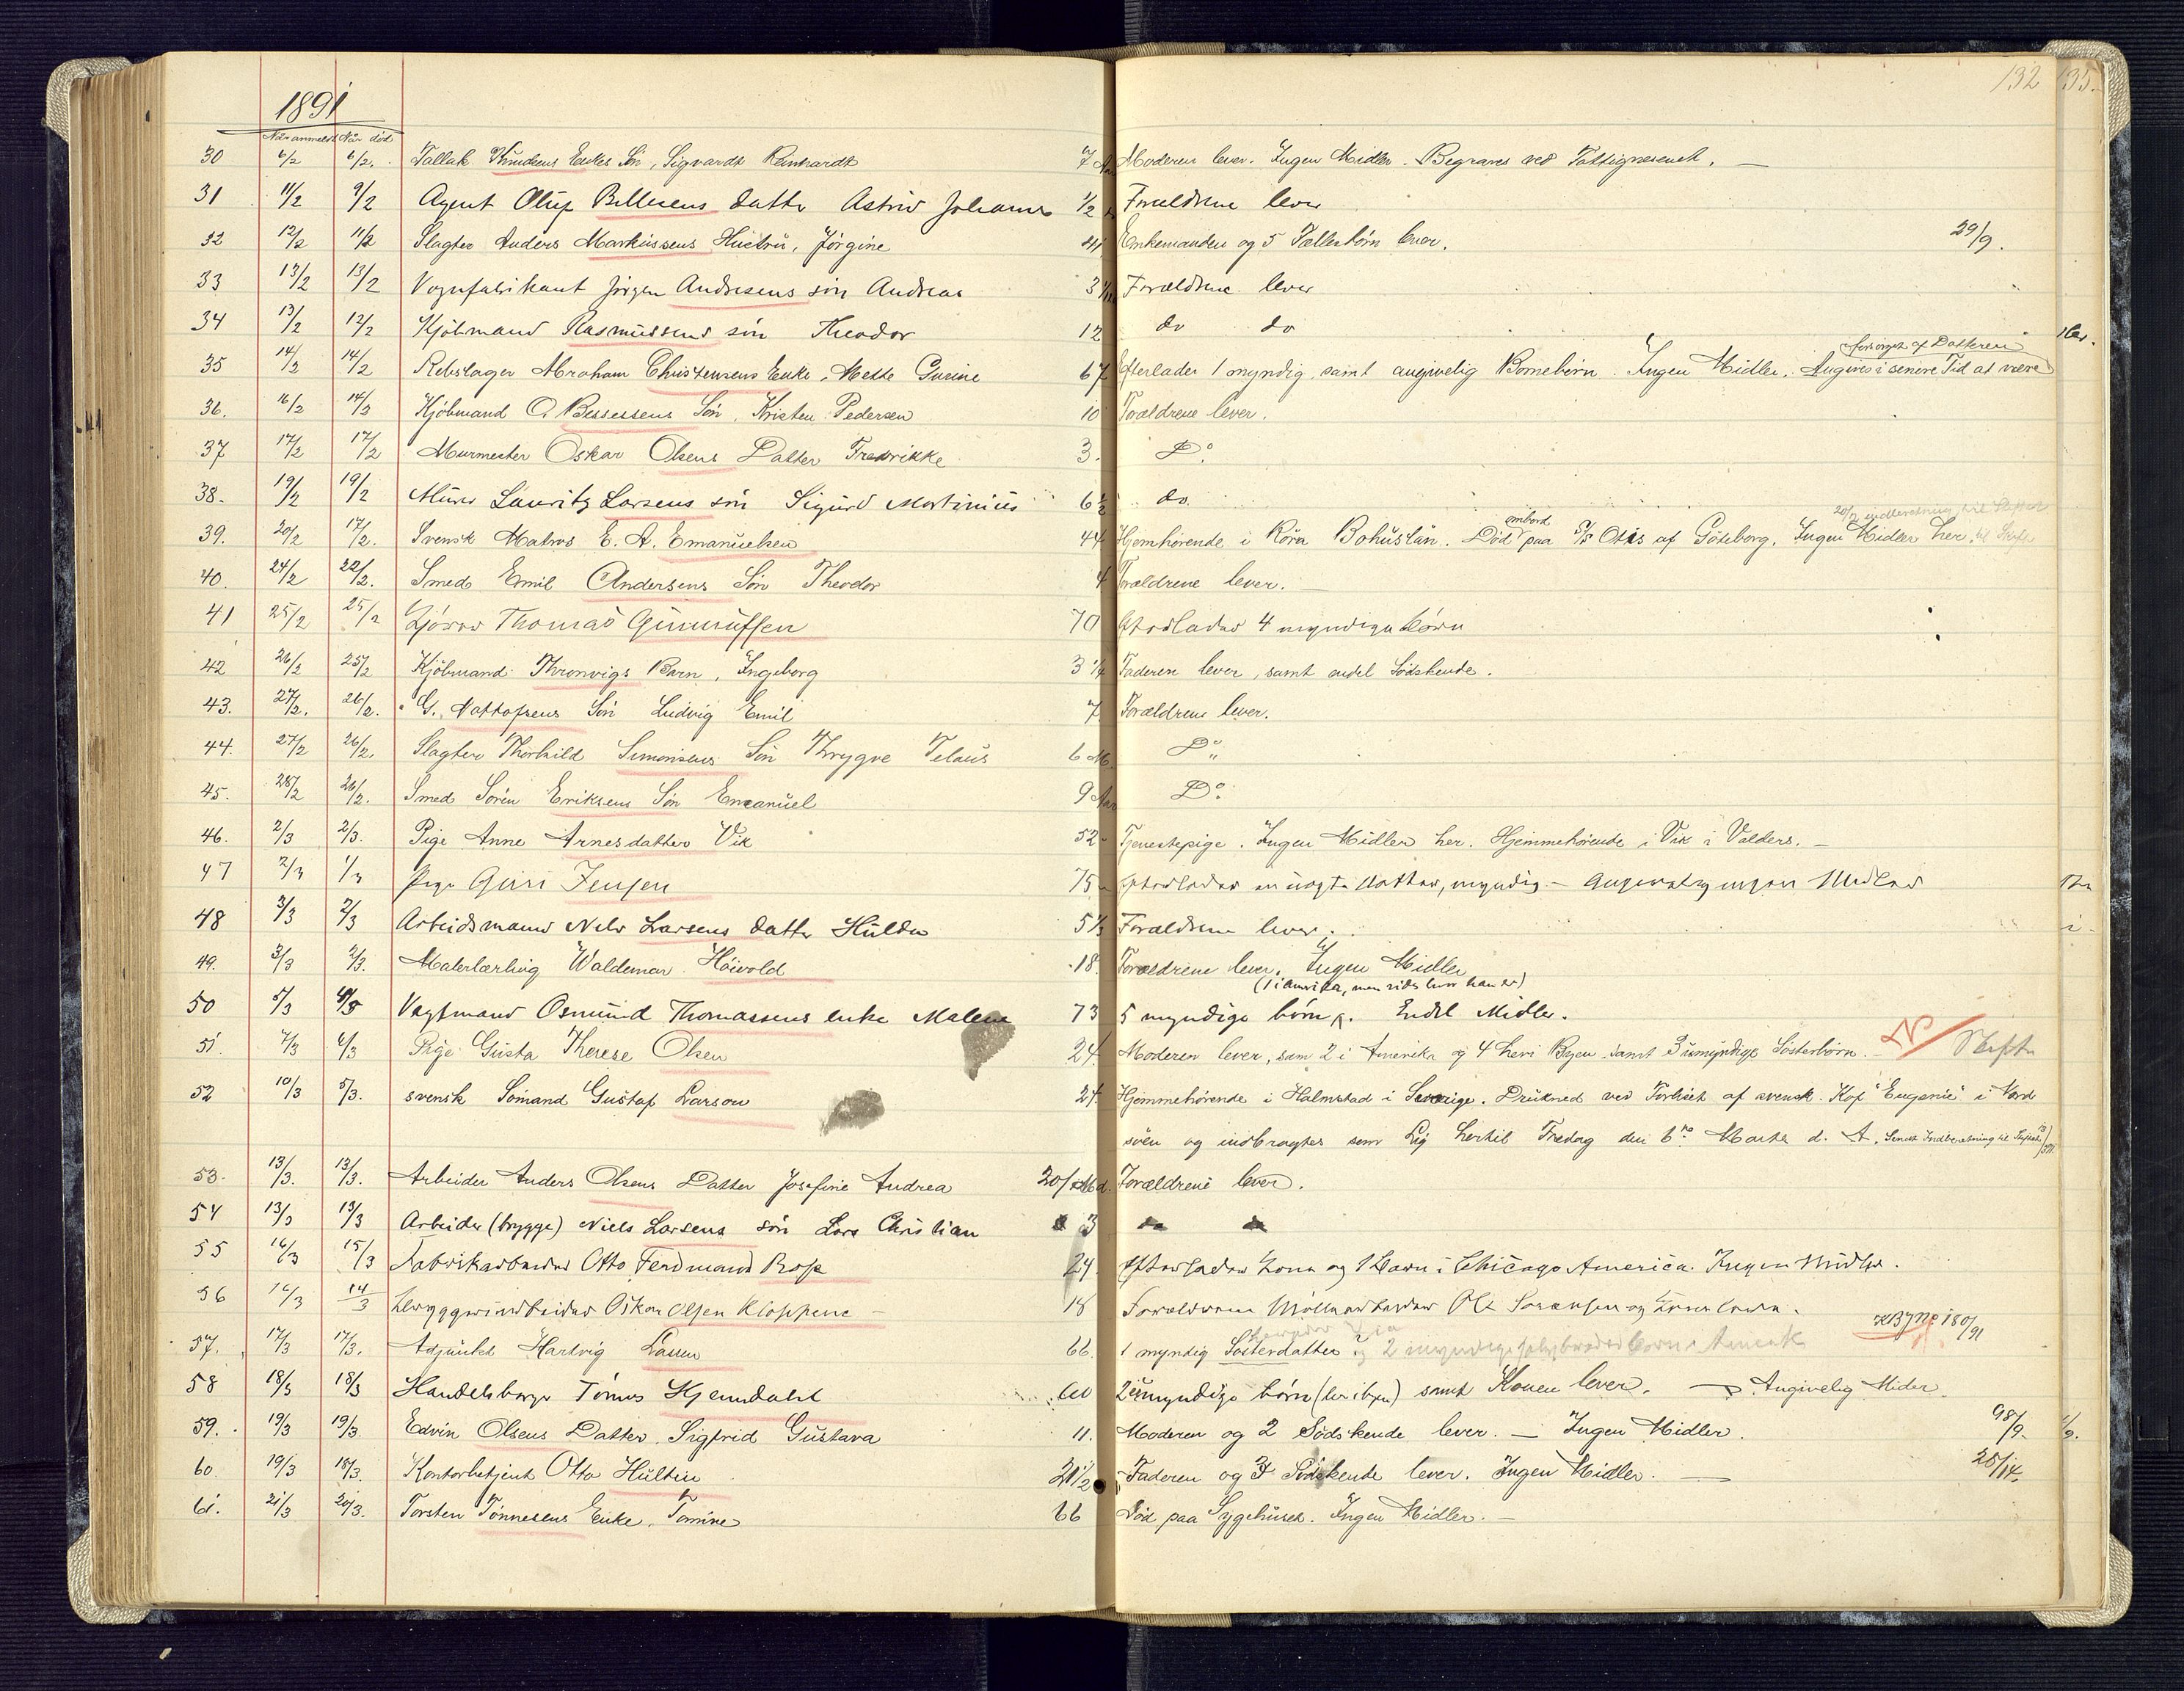 132 135.
1891
Når anmeldt Når död
30 6/2 6/2. Tallak Knudsens Enkes Sön, Sigvardt Reinhardt 7 Moderen lever. Ingen Midler. Begraves ved Fattigvæsenet. —
31 11/2 9/2 Agent Oluf Bellesens datter Astrid Johanne 1/2 Forældrene lever
32 12/2 11/2 Slagter Anders Markussens Hustru, Jörgine 41 Enkemanden og 5 Fællesbörn lever. 29/9.
33 13/2 13/2 Vognfabrikant Jörgen Andresens sön Andreas 3 Forældrene lever
34 13/2 12/2 Kjöbmand Rasmussens sön Theodor 12 do do
forsörget af Datteren
35 14/2 14/2 Rebslager Abraham Christensens Enke, Mette Gurine 67 Efterlader 1 myndig, samt angivelig Bornebörn. Ingen Midler. Angives i senere Tid at være
36. 16/2 14/2 Kjöbmand O. Bessesens Sön, Kristen Pedersen 10 Forældrene lever.
37 17/2 17/2 Murmester Oskar Olsens Datter Fredrikke 3. Do.
38. 19/2 19/2 Murer Lauritz Larsens sön Sigurd Martinius 6 1/2 do.
ombord 20/2 indberetning til Skiftet
39. 20/2 17/2. Svensk Matros E. A. Emanuelsen 44 Hjemhörende i Röra Bohuslän. Död paa S/S Otis af Göteborg. Ingen Midler her.
40. 24/2 22/2. Smed Emil Andersens Sön Theodor 4 Forældrene lever. —
41 25/2 25/2 Thomas Gunnuffsen 70 Efterlader 4 myndige börn
42 26/2 25/2 Kjöbmand Thronvigs Barn, Ingeborg 3 1/4 Faderen lever, samt endel Södskende.
43. 27/2. 26/2. G. Nattofsens Sön Ludvig Emil 7 Forældrene lever.
44. 27/2 26/2. Slagter Thorkild Simonsens Sön Thrygve Telaus 6 M. Do
45. 28/2 26/2. Smed Sören Eriksens Sön Emanuel 9 Aar Do.
46. 2/3 2/3. Pige Anne Arnesdatter Vik 52 Tjenestepige. Ingen Midler her. Hjemmehörende i Vik i Valders. —
47 2/3 1/3 Pige Guri Jensen 75 Efterlader en uægte datter, myndig — angivelig ingen Midler
48 3/3 2/3 Arbeidsmand Nils Larsens datter Hulda 5 1/3 Forældrene lever.
49. 3/3 2/3. Malerlærling Waldemar Höivold 18. Forældrene lever. Ingen Midler
(1 i Amerika, men vides hvor han er)
50 5/3 4/3 Vagtmand Osmund Thomassens enke Malene 73 5 myndige börn. Endel Midler.
51. 7/3 6/3 Pige Gusta Therese Olsen 24. Moderen lever, sam 2 i Amerika og 4 her i Byen samt 3 umyndige Sösterbörn. — Skifte
52 10/3 5/3. svensk Sömand Gustaf Larson 24. Hjemmehörende i Halmstad i Sverige. Druknet ved Forliset af svensk. Kof "Eugenie" i Nord
söen og indbragtes som Lig hertil Fredag den 6te Marts d. A. Sendt Indberetning til Skifteret
53. 13/3. 13/3. Arbeider Anders Olsens Datter Josefine Andrea Forældrene lever.
54 13/3 13/3 Arbeider (brygge) Niels Larsens sön Lars Christian 3 do do
55 16/3 15/3 Fabrikarbeider Otto Ferdinand Rosp 24. Efterlader kone og 1 barn i Chicago America. Ingen Midler.
56 16/3 14/3 Bryggeriarbeider Oskar Olsen Kloppene — 18 Forældrene Möllearbeider Ole Sorensen og kone lever.
57. 17/3 17/3. Adjunkt Hartvig Lassen 66. 1 myndig Sösterdatter og 2 myndige halvbroderbörn i Amerik 180/91
58 18/3 18/3 Handelsborger Tönnes Hjemdahl 60 2 umyndige börn (her i byen) samt Konen lever. — Angivelig Midler.
59. 19/3 19/3. Edvin Olsens Datter, Sigfrid Gustava 11. Moderen og 2 Södskende lever. — Ingen Midler. 98/9.
60 19/3 18/3. Kontorbetjent Otto Hultin 21 1/2 Faderen og 3 Södskende lever. Ingen Midler. — 25/14.
61. 21/3 20/3. Torsten Tönnesens Enke, Tomine 66 Död paa Sygehuset. Ingen Midler. —